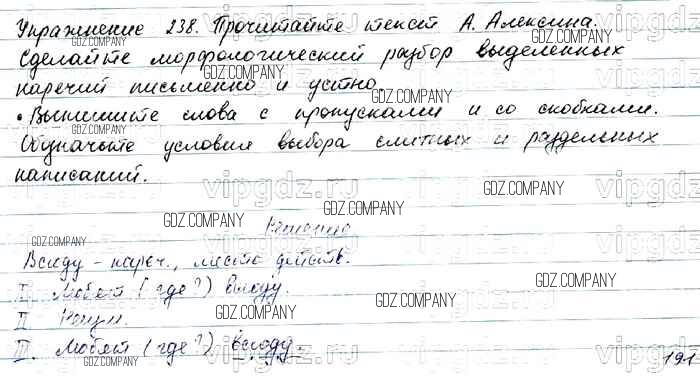 Упражнение 238. Прочитайте текст А. Алексина.
Сделайте морфологический разбор выделенных
наречий письменно и устно.
• Выпишите слова с пропусками и со скобками.
Обозначьте условия выбора слитных и раздельных
написаний.
Решение
Всюду - нареч., место действ.
I. Любят (где?) всюду.
II Неизм.
III. Любят (где?) всюду.
191
GDZ.COMPANY
vipgdz.ru